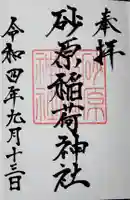 奉拝
砂原稲荷神社
令和四年九月十三日